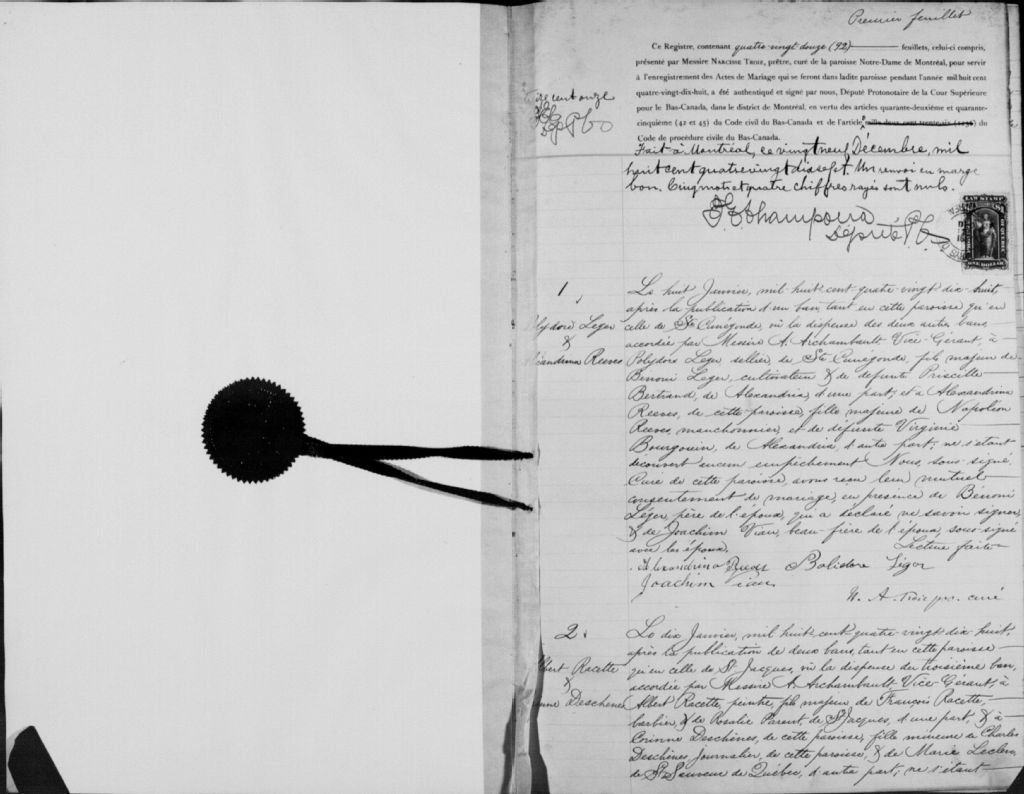 Premier feuillet
Ce Registre, contenant quatre-vingt douze (92) feuillets, celui-ci compris,
présenté par Messire NARCISSE TROIE, prêtre, curé de la paroisse Notre-Dame de Montréal, pour servir
à l'enregistrement des Actes de Mariage qui se feront dans ladite paroisse pendant l'année mil huit cent
quatre-vingt-dix-huit, a été authentiqué et signé par nous, Député Protonotaire de la Cour Supérieure
pour le Bas-Canada, dans le district de Montréal, en vertu des articles quarante-deuxième et quarante-
cinquième (42 et 45) du Code civil du Bas-Canada et de l'article mille deux cent trente-six (1236) du
Code de procédure civile du Bas-Canada.
cent onze
Fait à Montréal, ce vingt neuf Décembre, mil
huit cent quatre vingt dix sept. Un renvoi en marge
bon. Cinq mots et quatre chiffres rayés sont nuls.
Député P. C.
LAW STAMP
ONE DOLLAR
1
lydore Leger
&
exandrina Reeves
Le huit Janvier, mil huit cent quatre vingt dix-huit,
après la publication d'un ban, tant en cette paroisse qu'en
celle de Ste Cunégonde, vu la dispense des deux autres bans,
accordée par Messire A. Archambault Vice-Gérant, à
Polydore Leger, sellier, de Ste Cunégonde, fils majeur de
Bénoni Leger, cultivateur & de défunte Priscille
Bertrand, de Alexandria, d'une part; et à Alexandrina
Reeves, de cette paroisse, fille majeure de Napoléon
Reeves, manchonnier, et de défunte Virginie
Bourgouin, de Alexandria, d'autre part; ne s'étant
découvert aucun empêchement Nous, sous-signé,
Curé de cette paroisse, avons reçu leur mutuel
consentement de mariage, en présence de Bénoni
Léger, père de l'époux, qui a déclaré ne savoir signer,
& de Joachim Viau, beau-frère de l'époux, sous-signé
avec les époux. Lecture faite
Alexandrina Reeves Polidore Léger
Joachim Viau
N. A. Troie ptr. curé
2
lbert Racette
&
inne Deschênes
Le dix Janvier, mil huit cent quatre-vingt dix-huit,
après la publication de deux bans, tant en cette paroisse
qu'en celle de St Jacques, vu la dispense du troisième ban,
accordée par Messire A. Archambault Vice-Gérant, à
Albert Racette, peintre, fils majeur de François Racette,
barbier, & de Rosalie Parent, de St Jacques, d'une part, & à
Corinne Deschênes, de cette paroisse, fille mineure de Charles
Deschênes Journalier, de cette paroisse, & de Marie Leclerc,
de St Sauveur de Québec, d'autre part; ne s'étant